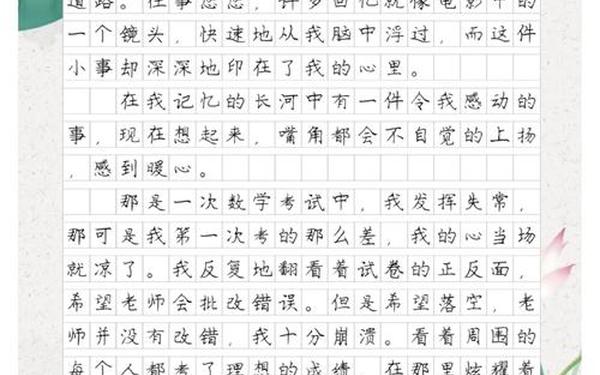 道路。往事悠悠，许多回忆就像电影中的
一个镜头，快速地从我脑中浮过，而这件
小事却深深地印在了我的心里。
在我记忆的长河中有一件令我感动的
事，现在想起来，嘴角都会不自觉的上扬
，感到暖心。
那是一次数学考试中，我发挥失常，
那可是我第一次考的那么差，我的心当场
就凉了。我反复地翻看着试卷的正反面，
希望老师会批改错误。但是希望落空，老
师并没有改错，我十分崩溃。看着周围的
每个人都考了理想的成绩，在那里炫耀着